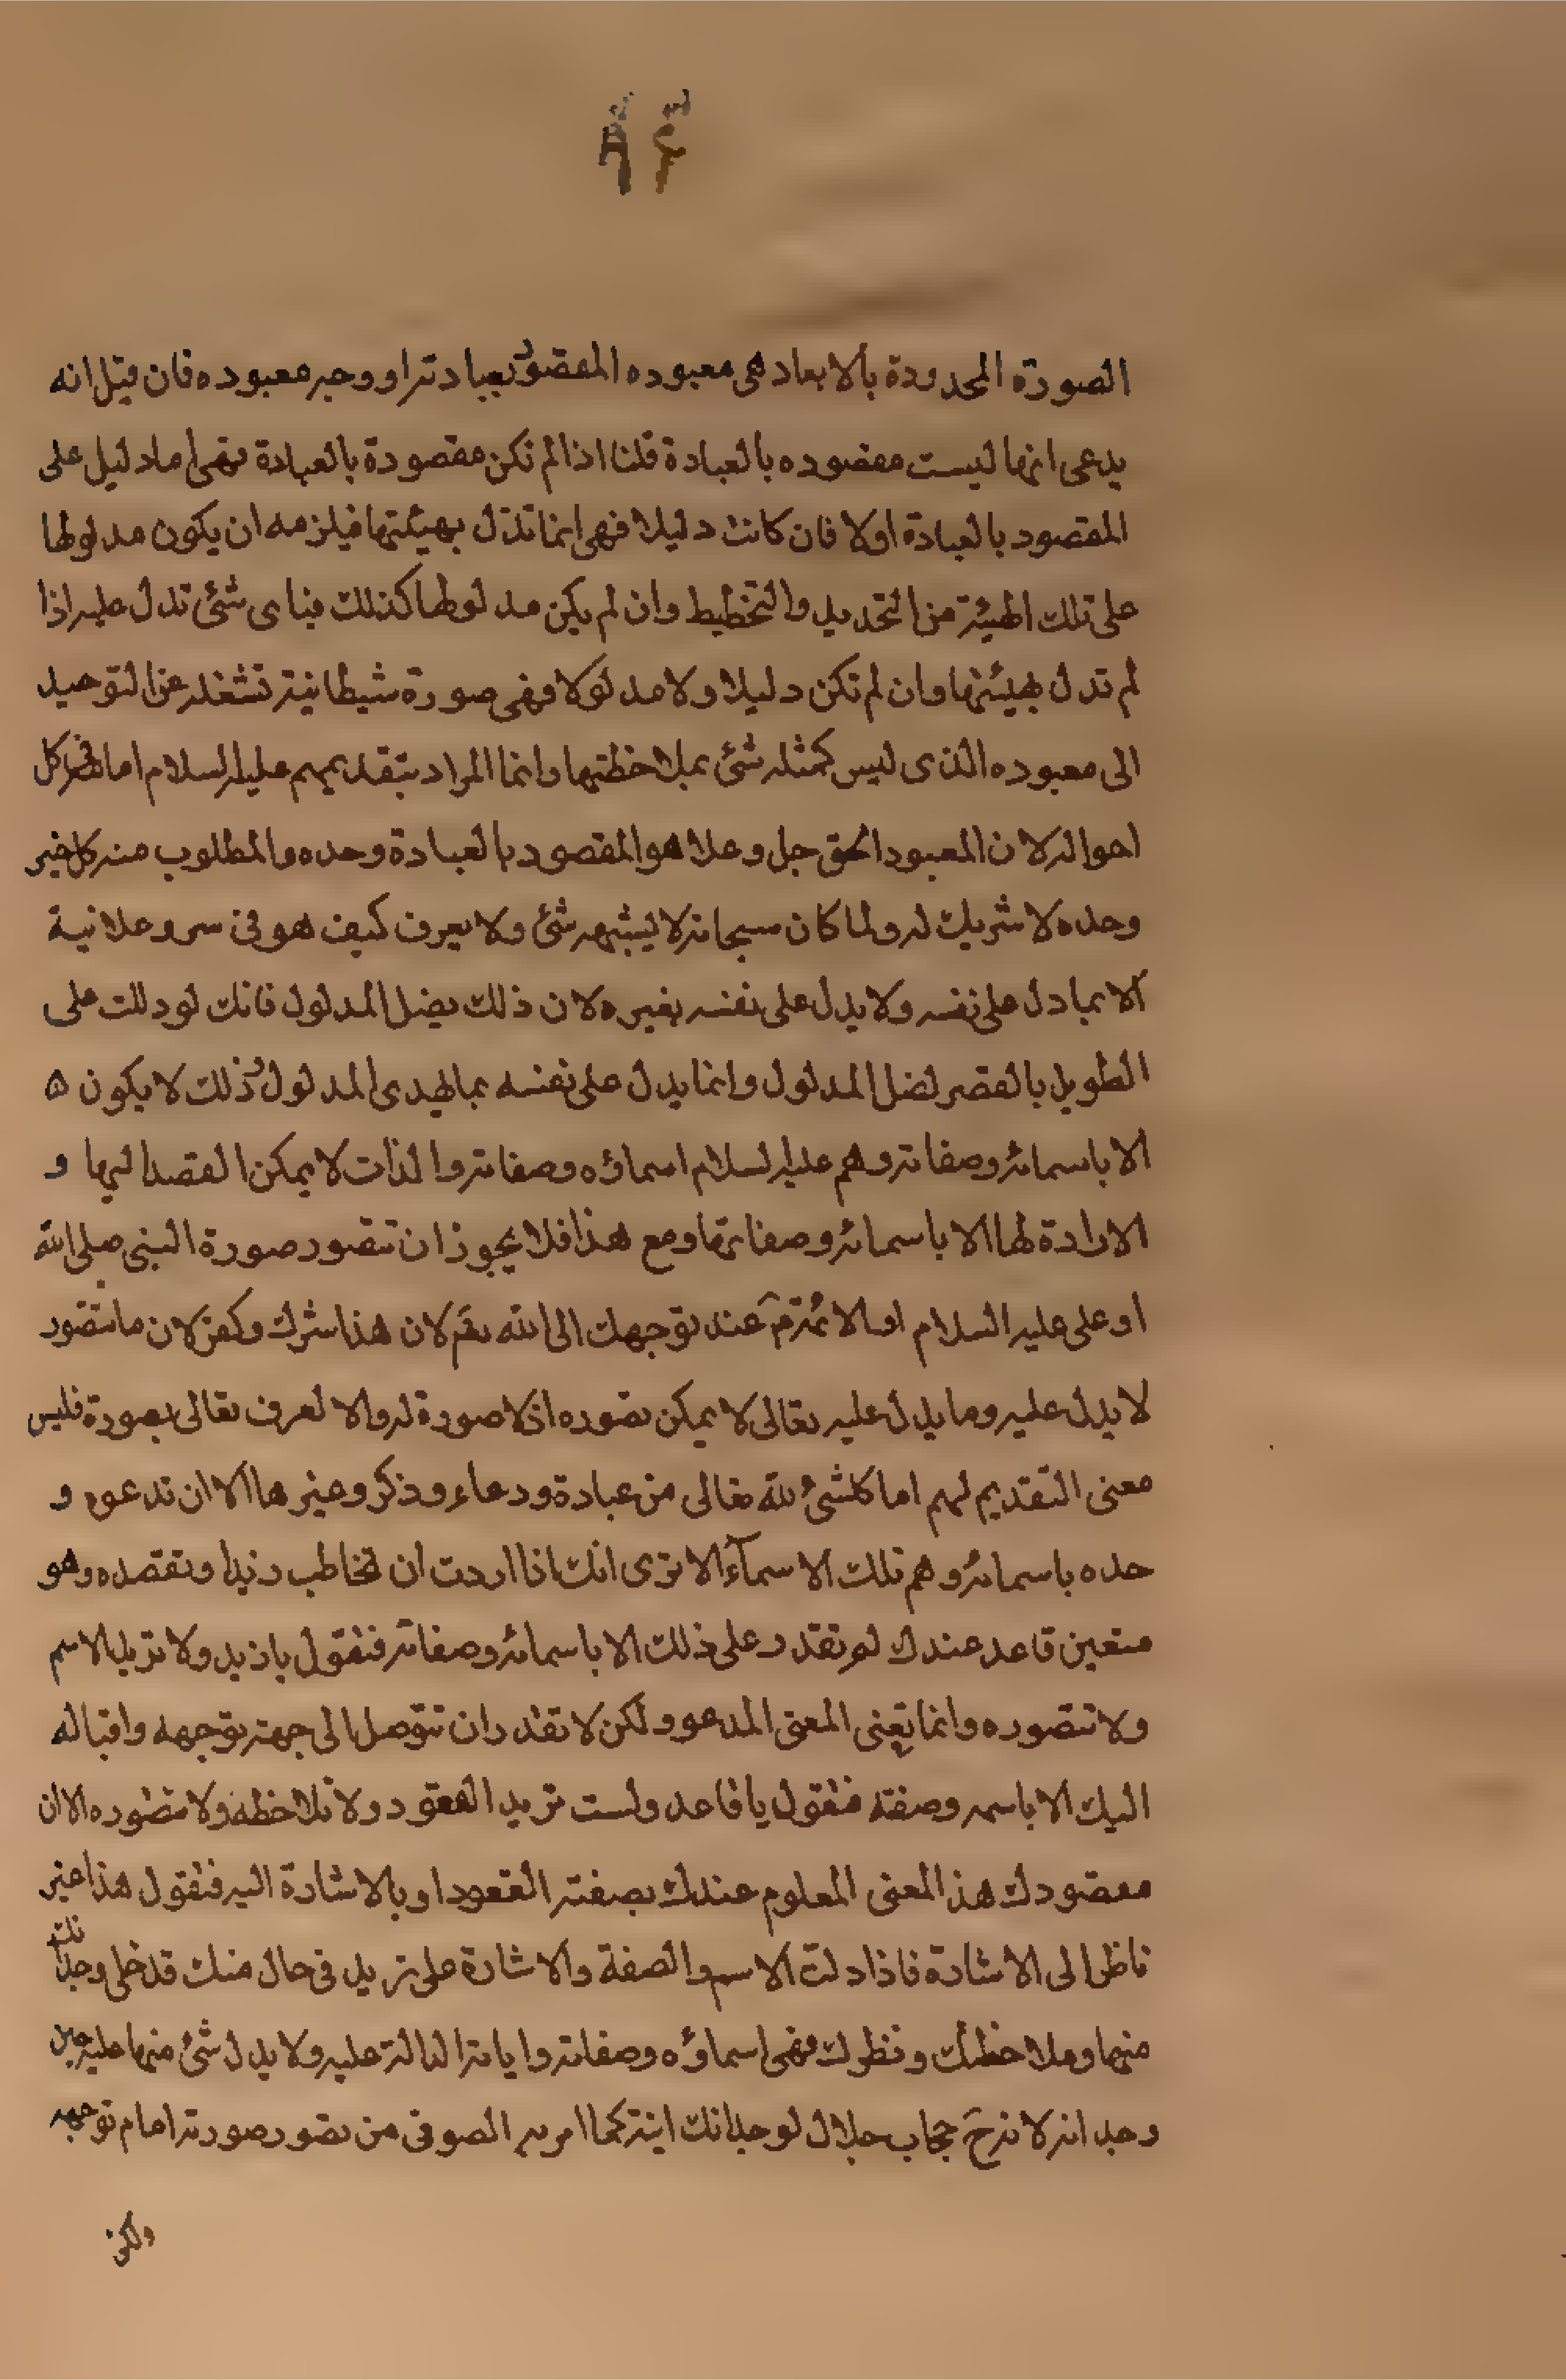 الصورة المحدودة بالابعاد هى معبوده المقصود بعبادته او وجه معبوده فان قيل انه
يدعى انها ليست مقصوده بالعبادة قلنا اذا لم تكن مقصودة بالعبادة فهى اما دليل على
المقصود بالعبادة اولا فان كانت دليلا فهى انما تدل بهيئتها فيلزمه ان يكون مدلولها
على تلك الهيئة من التحديد والتخطيط وان لم يكن مدلولها كذلك فباى شئ تدل عليه اذا
لم تدل بهيئتها وان لم تكن دليلا ولا مدلولا فهى صورة شيطانية تشغله عن التوحيد
الى معبوده الذى ليس كمثله شئ بملاحظتها وانما المراد بتقديمهم عليهم السلام امامه فى كل
احواله لان المعبود الحق جل وعلا هو المقصود بالعبادة وحده والمطلوب منه كل خير
وحده لا شريك له ولما كان سبحانه لا يشبهه شئ ولا يعرف كيف هو فى سر وعلانية
الا بما دل على نفسه ولا يدل على نفسه بغيره لان ذلك يضل المدلول فانك لو دللت على
الطويل بالقصر لضل المدلول وانما يدل على نفسه بما يهدى المدلول وذلك لا يكون
الا باسمائه وصفاته وهم عليهم السلام اسماؤه وصفاته والذات لا يمكن القصد اليها و
الارادة لها الا باسمائه وصفاتها ومع هذا فلا يجوز ان تتصور صورة النبى صلى الله
او على عليه السلام او الائمة عند توجهك الى الله تعم لان هذا شرك وكفر لان ما تتصور
لا يدل عليه وما يدل عليه تعالى لا يمكن تصوره اذ لا صورة له والا لعرف تعالى بصورة فليس
معنى التقديم لهم امام كلشئ لله تعالى من عبادة ودعاء وذكر وغيرها الا ان تدعوه و
حده باسمائه وهم تلك الاسمآء الا ترى انك اذا اردت ان تخاطب زيدا وتقصده وهو
متعين قاعد عندك لم تقدر على ذلك الا باسمائه وصفاته فتقول يا زيد ولا تريد الاسم
ولا تتصوره وانما تعنى المعنى المدعو ولكن لا تقدر ان تتوصل الى جهة توجهه واقباله
اليك الا باسمه وصفته فتقول يا قاعد ولست تريد القعود ولا تلاحظه ولا تتصوره الا ان
مقصودك هذا المعنى المعلوم عندك بصفته القعود او بالاشارة اليه فتقول هذا غير
ناظر الى الاشارة فاذا دلت الاسم والصفة والاشارة على زيد فى حال منك قد خلى وجدانك
منها وملاحظتك ونظرك فهى اسماؤه وصفاته واياته الدالة عليه ولا يدل شئ منها عليه حين
وجد انه لا حجاب جلال لوجدانك كما امر الصوفى من تصور صورته امام توجهه
ولكن